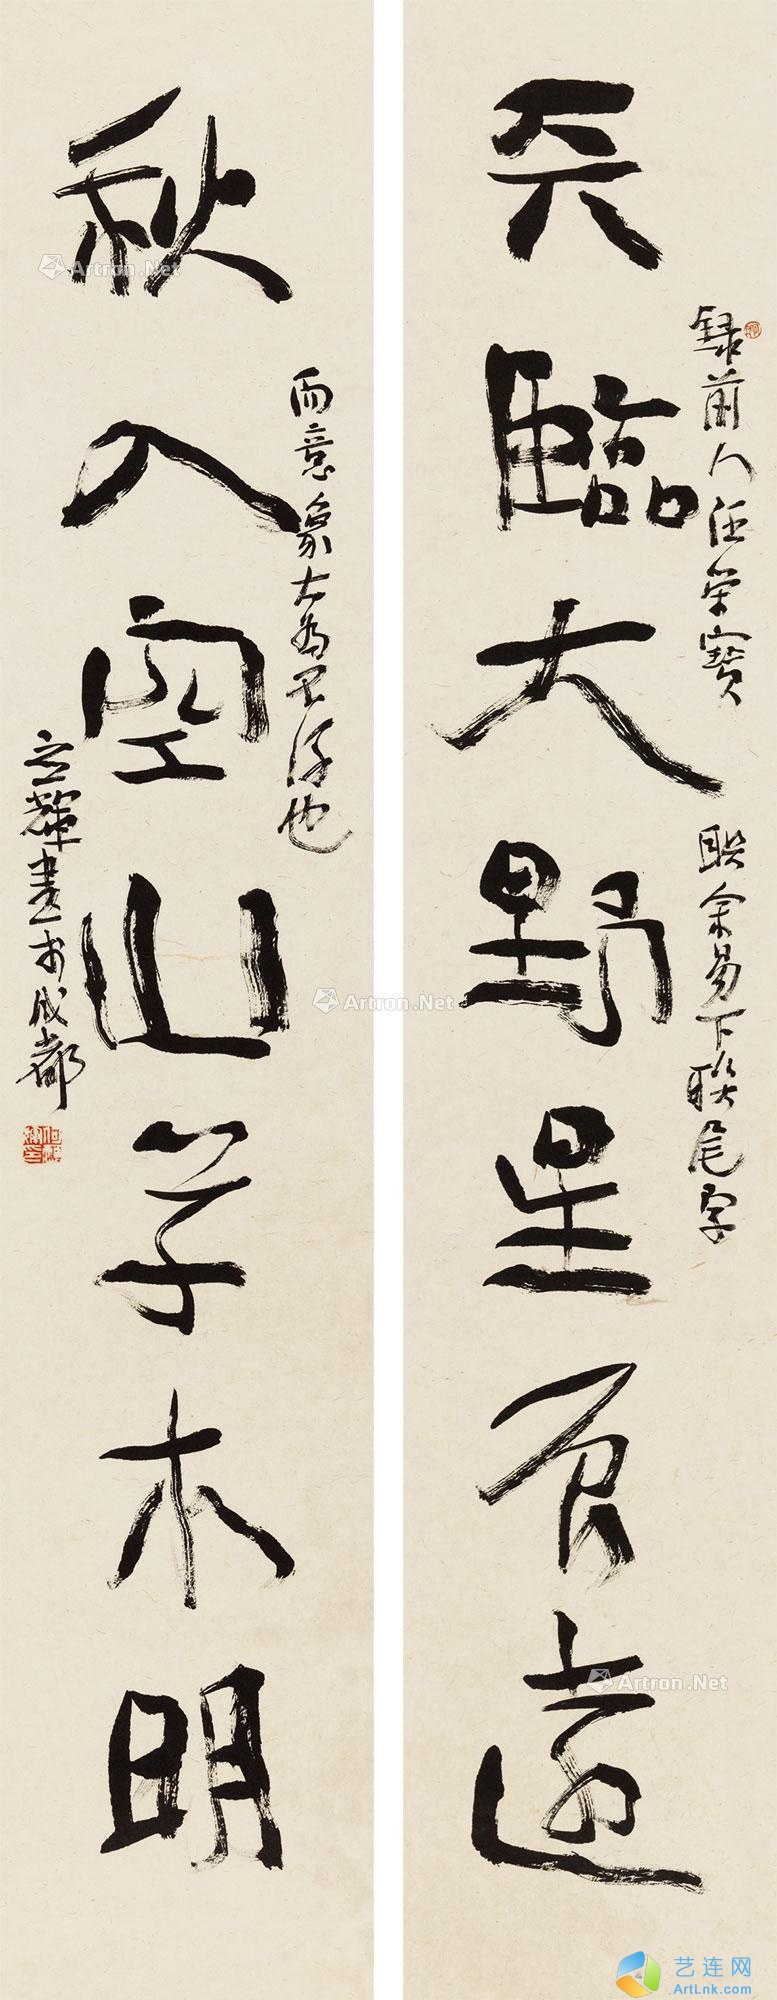 天臨大野星辰遠
録前人汪荣寶
聯余易下联尾字
秋入空山草木明
而意象大為也
应輝書于成都
Artron.Net
Artron.Net
Artron.Net
艺连网
ArtLnk.com